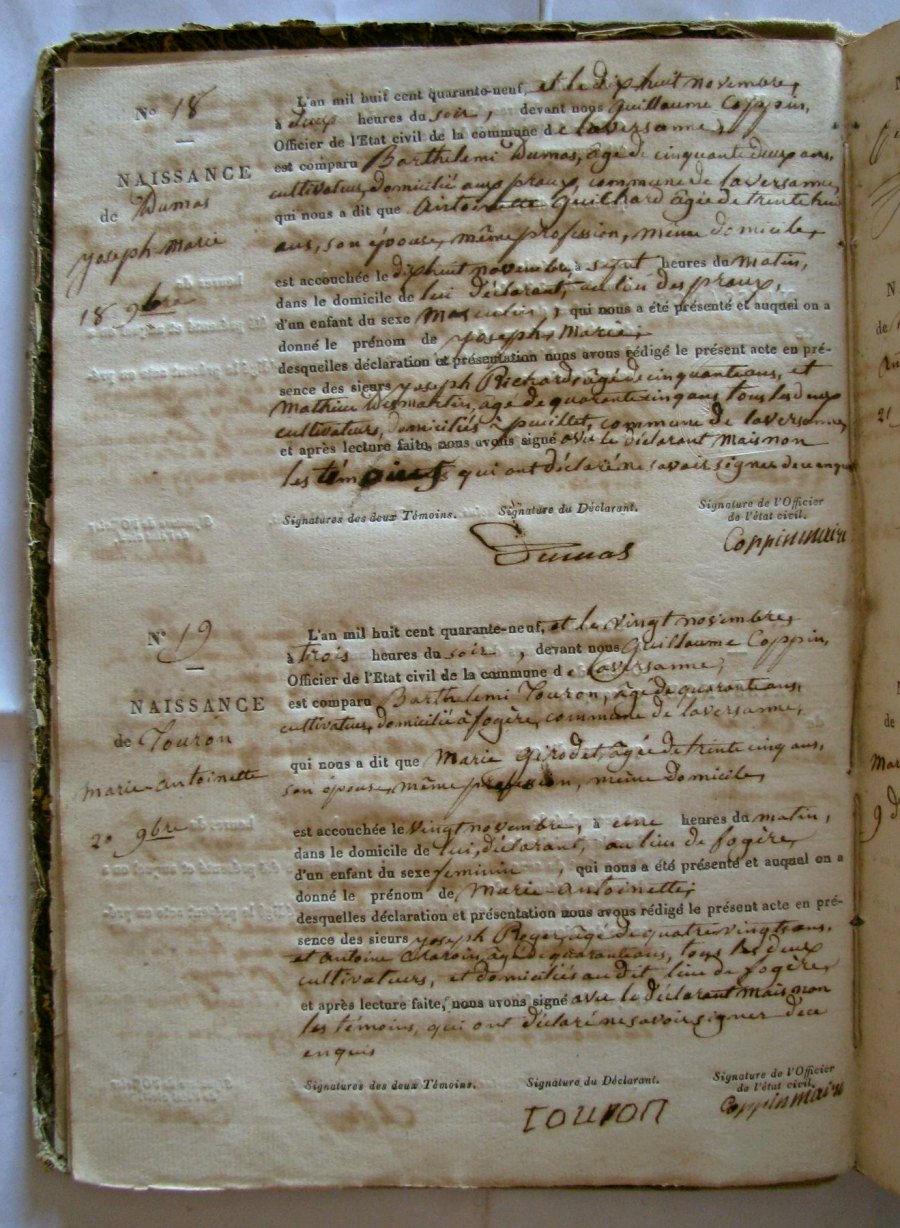 Nº 18
NAISSANCE
de Dumas
joseph marie
18 9bre
L'an mil huit cent quarante-neuf, et le dix huit novembre,
à deux heures du soir, devant nous Guillaume Coppin,
Officier de l'Etat civil de la commune de laversanne,
est comparu Barthelemi Dumas, âgé de cinquante deux ans,
cultivateur, domicilié aux praux, commune de laversanne,
qui nous a dit que Antoinette Guilhard âgée de trente huit
ans, son épouse, même profession, même domicile,
est accouchée le dix huit novembre, à sept heures du matin,
dans le domicile de lui déclarant, au lieu des praux,
d'un enfant du sexe masculin, qui nous a été présenté et auquel on a
donné le prénom de joseph, marie,
desquelles déclaration et présentation nous avons rédigé le présent acte en pré-
sence des sieurs joseph Richard, âgé de cinquante ans, et
Mathieu âge de quarente cinq ans, tous les deux
cultivateurs, domiciliés à commune de laversanne,
et après lecture faite, nous avons signé avec le déclarant mais non
les témoins qui ont déclaré ne savoir signer de ce enquis
Signatures des deux Témoins. Signature du Déclarant. Signature de l'Officier
de l'état civil.
Dumas Coppin maire
Nº 19
NAISSANCE
de Touron
marie-antoinette
20 9bre
L'an mil huit cent quarante-neuf, et le vingt novembre,
à trois heures du soir, devant nous Guillaume Coppin,
Officier de l'Etat civil de la commune de laversanne,
est comparu Barthelemi Touron, âgé de quarante ans,
cultivateur, domicilié à fogère, commune de laversanne,
qui nous a dit que Marie Girodet, âgée de trente cinq ans,
son épouse, même profession, même domicile,
est accouchée le vingt novembre, à une heures du matin,
dans le domicile de lui, déclarant, au lieu de fogère,
d'un enfant du sexe feminin, qui nous a été présenté et auquel on a
donné le prénom de Marie-Antoinette,
desquelles déclaration et présentation nous avons rédigé le présent acte en pré-
sence des sieurs joseph Roger, âgé de quatre vingt ans,
et Antoine âgé de quarante ans, tous les deux
cultivateurs, et domiciliés au dit lieu de fogère,
et après lecture faite, nous avons signé avec le déclarant mais non
les témoins, qui ont déclaré ne savoir signer de ce
enquis
Signatures des deux Témoins. Signature du Déclarant. Signature de l'Officier
de l'état civil.
touron Coppin maire